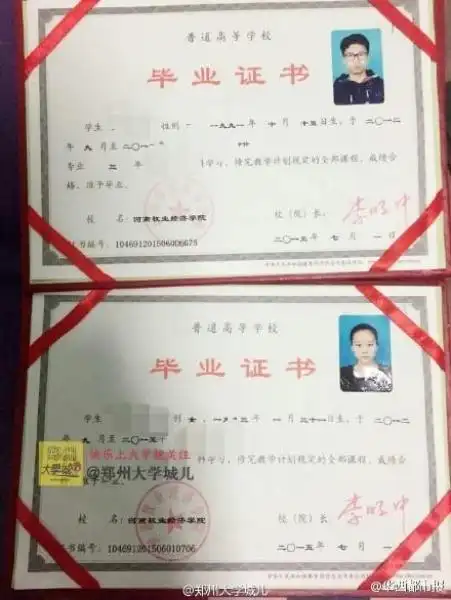 普通高等学校
毕业证书
学生 性别 一九九一年 十月 十五日生，于 二〇一二
年 九 月至 二〇一
专业 三 年 科学习，修完教学计划规定的全部课程，成绩合
格，准予毕业。
校 名：河南牧业经济学院 校（院）长：李明中
证书编号：104691201506006675 二〇一五 年 七 月 一 日
普通高等学校
毕业证书
学生 别 女，一九九三年 一月 三十一日生，于 二〇一二
年 九 月至 二〇一五年
快乐上大学就关注
科学习，修完教学计划规定的全部课程，成绩合
大学城儿 @郑州大学城儿
准予毕业。
校 名：河南牧业经济学院 校（院）长 李明中
证书编号：104691201506010706 二〇一五 年 七 月 一
@郑州大学城儿
@华西都市报